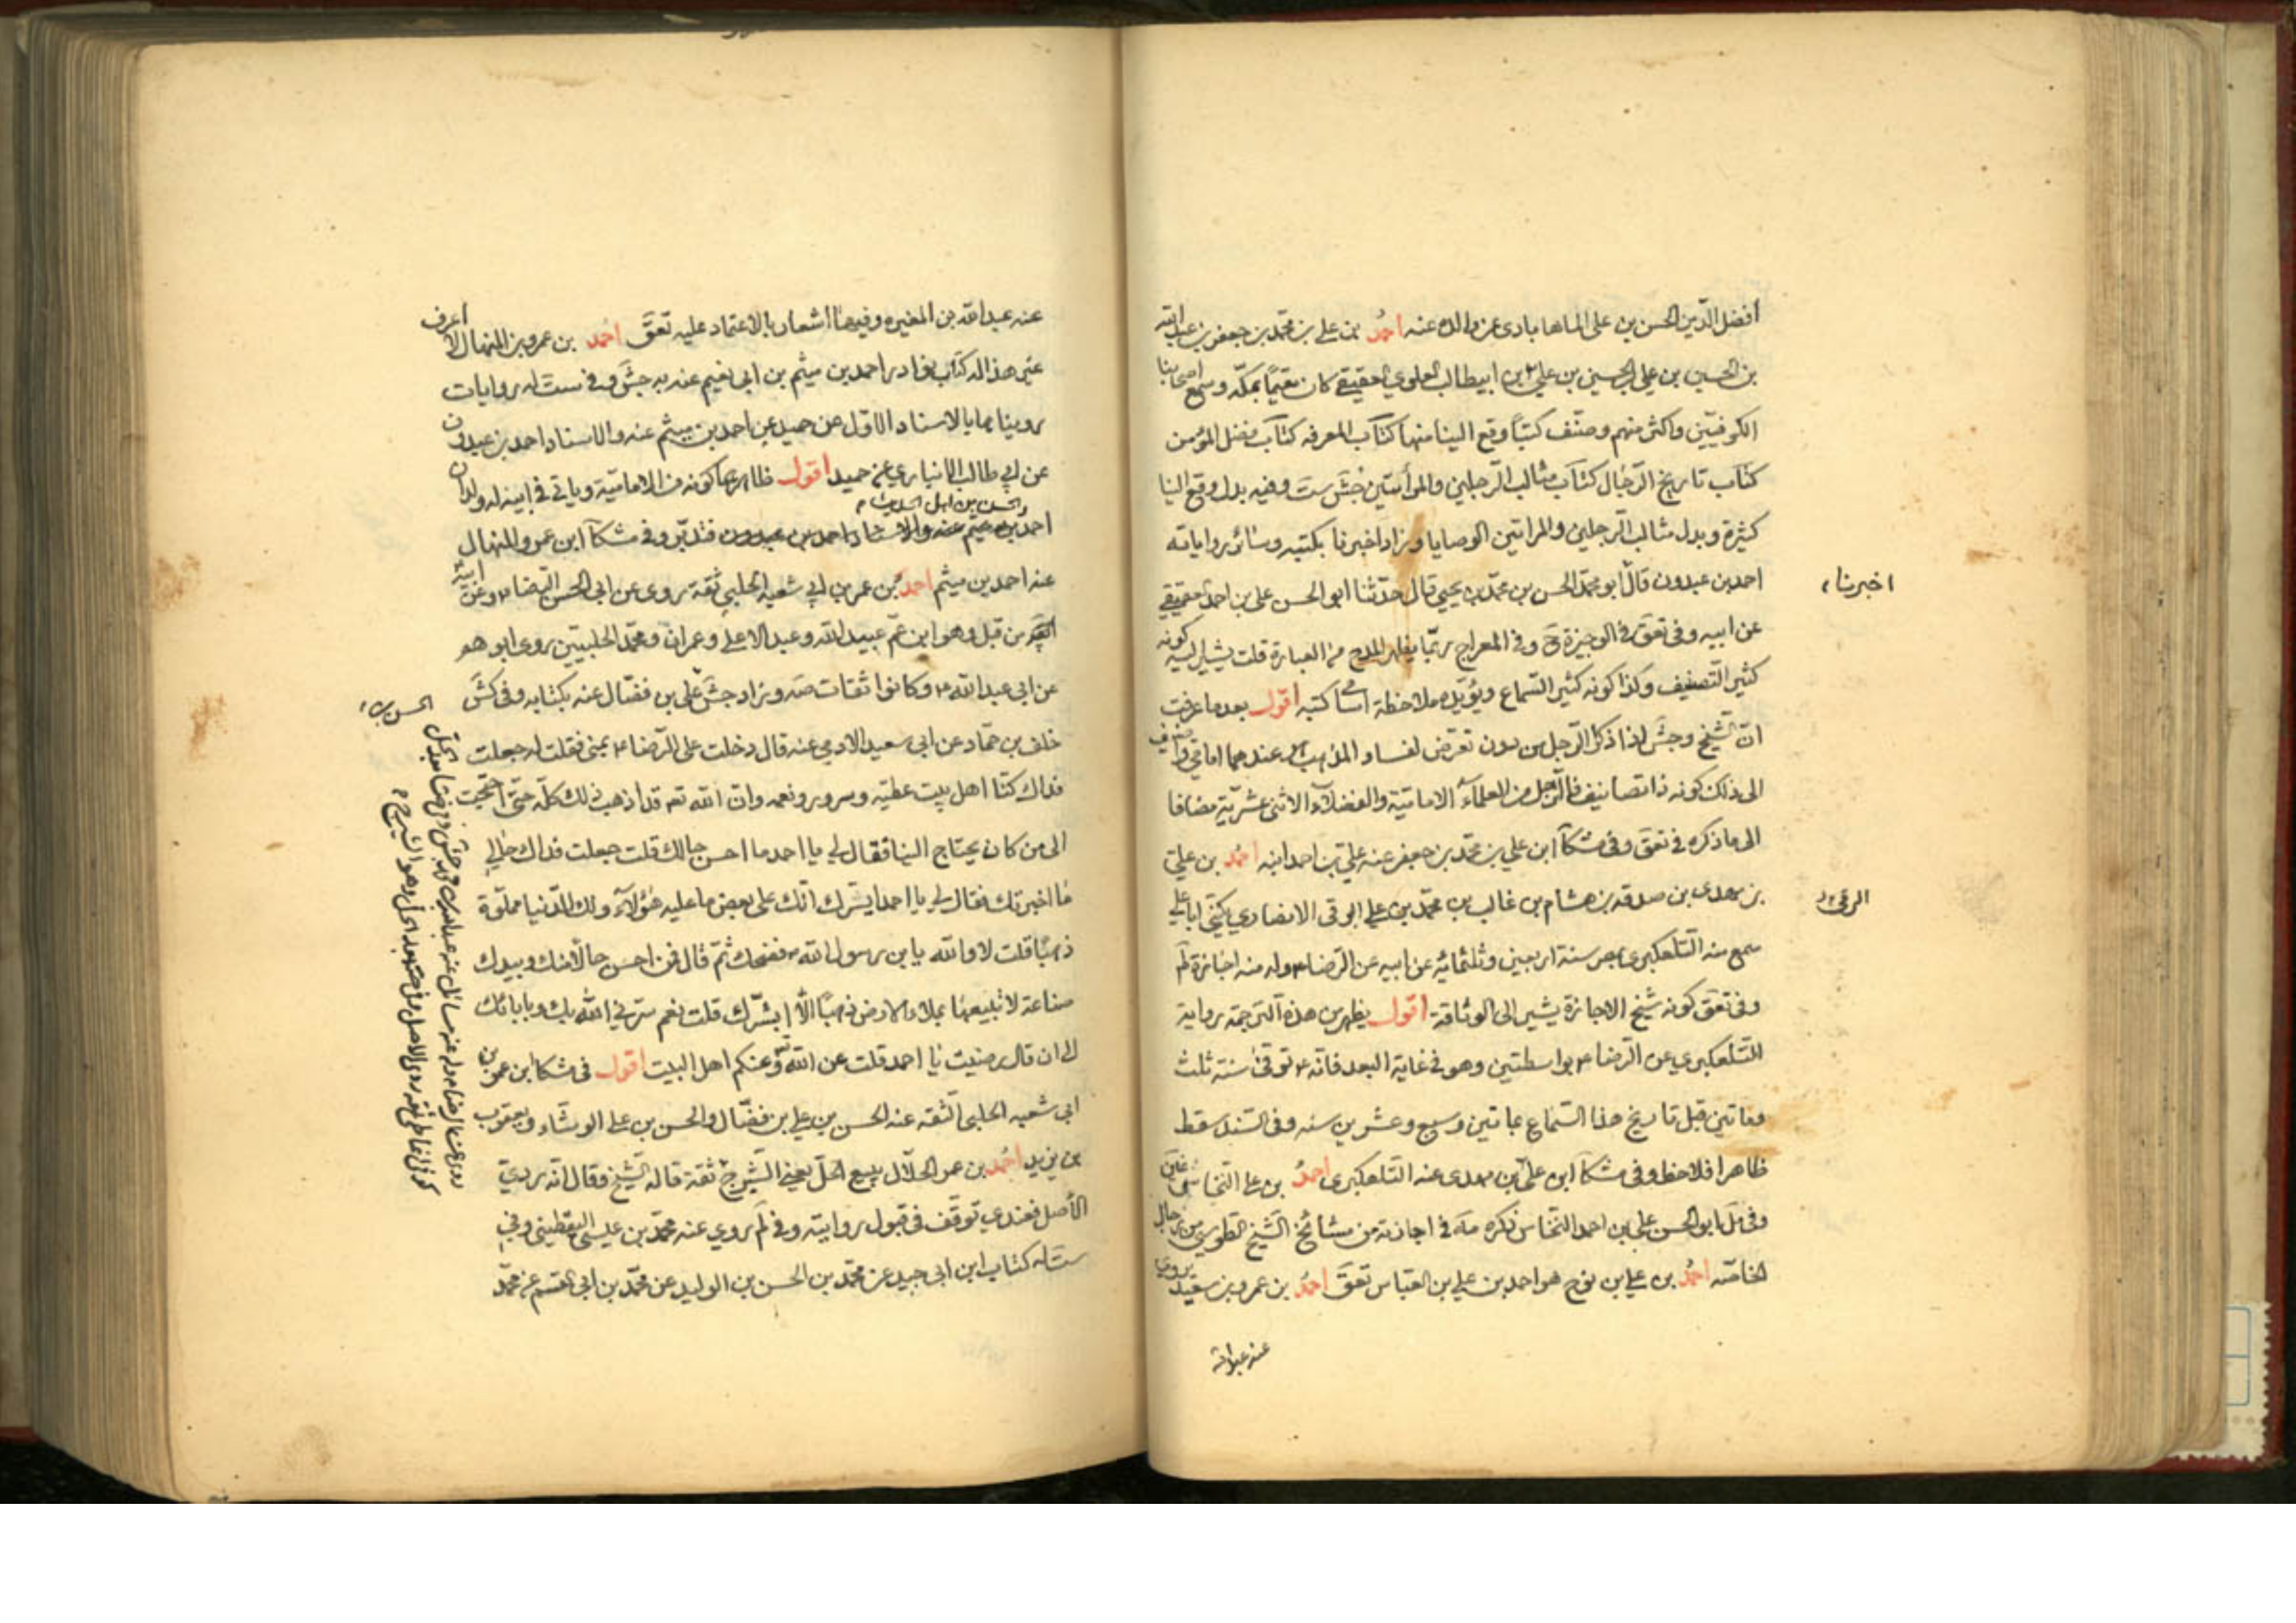 افضل الدّين الحسن بن على الماهابادى عن والده عنه احمد بن على بن محمّد بن جعفر بن عبد اللّه
بن الحسين بن على بن الحسين بن على بن ابيطالب العلوي العقيقى كان مقيماً بمكّه وسمع اصحابنا
الكوفيّين واكثر منهم وصنّف كتباً وقع الينا منها كتاب المعرفه كتاب فضل المؤمن
كتاب تاريخ الرّجال كتاب مثالب الرّجلين والمرأتين جش ست وفيه بدل وقع الينا
كثيرة وبدل مثالب الرجلين والمراتين الوصايا وزاد اخبرنا بكتبه وسائر رواياته
اخبرنا
احمد بن عبدون قال ابو محمّد الحسن بن محمّد بن يحيى قال حدّثنا ابو الحسن على بن احمد العقيقي
عن ابيه وفى تعق فى الوجيزة ح وفى المعراج ربّما يظهر المدح من العبارة قلت يشير اليه كونه
كثير التّصنيف وكذا كونه كثير السّماع ويؤيّده ملاحظة اسامى كتبه اقول بعد ما عرفت
انّ الشّيخ وجش اذا ذكرا الرّجل من دون تعرّض لفساد المذهب فهو عندهما امامى واضيف
الى ذلك كونه ذا تصانيف فالرّجل من العلماء الاماميّة والفضلاء الاثنى عشريّة مضافا
الى ما ذكره فى تعق وفى مشكا ابن على بن محمّد بن جعفر عنه علىّ بن احمد ابنه احمد بن علىّ
بن مهدى بن صدقه بن هشام بن غالب بن محمّد بن على الرقى الانصاري يكنّى ابا على
الرقى
سمع منه التّلعكبرى بمصر سنة اربعين وثلثمائه عن ابيه عن الرّضا ع وله منه اجازة لم
وفى تعق كونه شيخ الاجازة يشير الى الوثاقة اقول يظهر من هذه الترجمة رواية
التّلعكبري عن الرّضا ع بواسطتين وهو فى غاية البعد فانّه ع توفى سنة ثلث
ومأتين قبل تاريخ هذا السّماع بمأتين وسبع وعشرين سنه وفى السّند سقط
ظاهرا فلاحظ وفى مشكا ابن علىّ بن مهدى عنه التّلعكبرى احمد بن على النّجاشى
وفى مل ابو الحسن على بن احمد النّجاشى ذكره مه فى اجازته من مشائخ الشّيخ الطوسي من رجال
الخاصّه احمد بن على بن نوح هو احمد بن على بن العبّاس تعق احمد بن عمرو بن سعيد يروى
عنه عبد اللّه
عنه عبد اللّه بن المغيره وفيهما اشعار بالاعتماد عليه تعق احمد بن عمرو بن المنهال لا اعرف
غير هذا له كتاب نوادر احمد بن ميثم بن ابى نعيم عنه به جش وفى ست له روايات
رويناها بالاسناد الاوّل عن حميد عن احمد بن ميثم عنه والاسناد احمد بن عبدون
عن ابي طالب الانباري عن حميد اقول ظاهرهما كونه من الاماميّة وياتى فى ابيه له ولدان
احمد والحسن من اهل الحديث
فتدبّر وفى مشكا ابن عمرو المنهال
عنه احمد بن ميثم احمد بن عمر بن ابي شعبة الحلبي ثقة روى عن ابى الحسن الرّضا ع وعن ابيه
من قبل وهو ابن عم عبيد اللّه وعبد الاعلى وعمران ومحمّد الحلبيين روى ابوهم
عن ابى عبد اللّه ع وكانوا ثقات صه وزاد جش علي بن فضّال عنه بكتابه وفى كش
خلف بن حمّاد عن ابى سعيد الادمي عنه قال دخلت على الرّضا ع بمنى فقلت له جعلت
فداك كنّا اهل بيت عطيّه وسرور ونعمه وانّ اللّه تع قد اذهب ذلك كلّه حتّى احتجت
الى من كان يحتاج الينا فقال لي يا احمد ما احسن حالك قلت جعلت فداك حالي
ما اخبرتك فقال لي يا احمد ايسرّك انّك على بعض ما عليه هؤلاء ولك الدّنيا مملوّة
ذهبا قلت لا واللّه يابن رسول اللّه ص فضحك ثمّ قال فمن احسن حالا منك وبيدك
صناعة لا تبيعها بملاء الارض ذهبا الا ابشّرك قلت نعم سرّني اللّه بك وبابائك
الى ان قال رضيت يا احمد قلت عن اللّه تع وعنكم اهل البيت اقول فى مشكا ابن عمر بن
ابى شعبه الحلبى الثّقه عنه الحسن بن على بن فضّال والحسن بن على الوشّاء ويعقوب
بن يزيد احمد بن عمر الحلّال يبيع الحلّ يعني الشّيرج ثقة قاله الشّيخ وقال انّه رديّ
الأصل فعندي توقّف فى قبول روايته وفى لم روي عنه محمّد بن عيسى اليقطيني وفى
ست له كتاب ابن ابى جيد عن محمّد بن الحسن بن الوليد عن محمّد بن ابى القسم عن محمّد